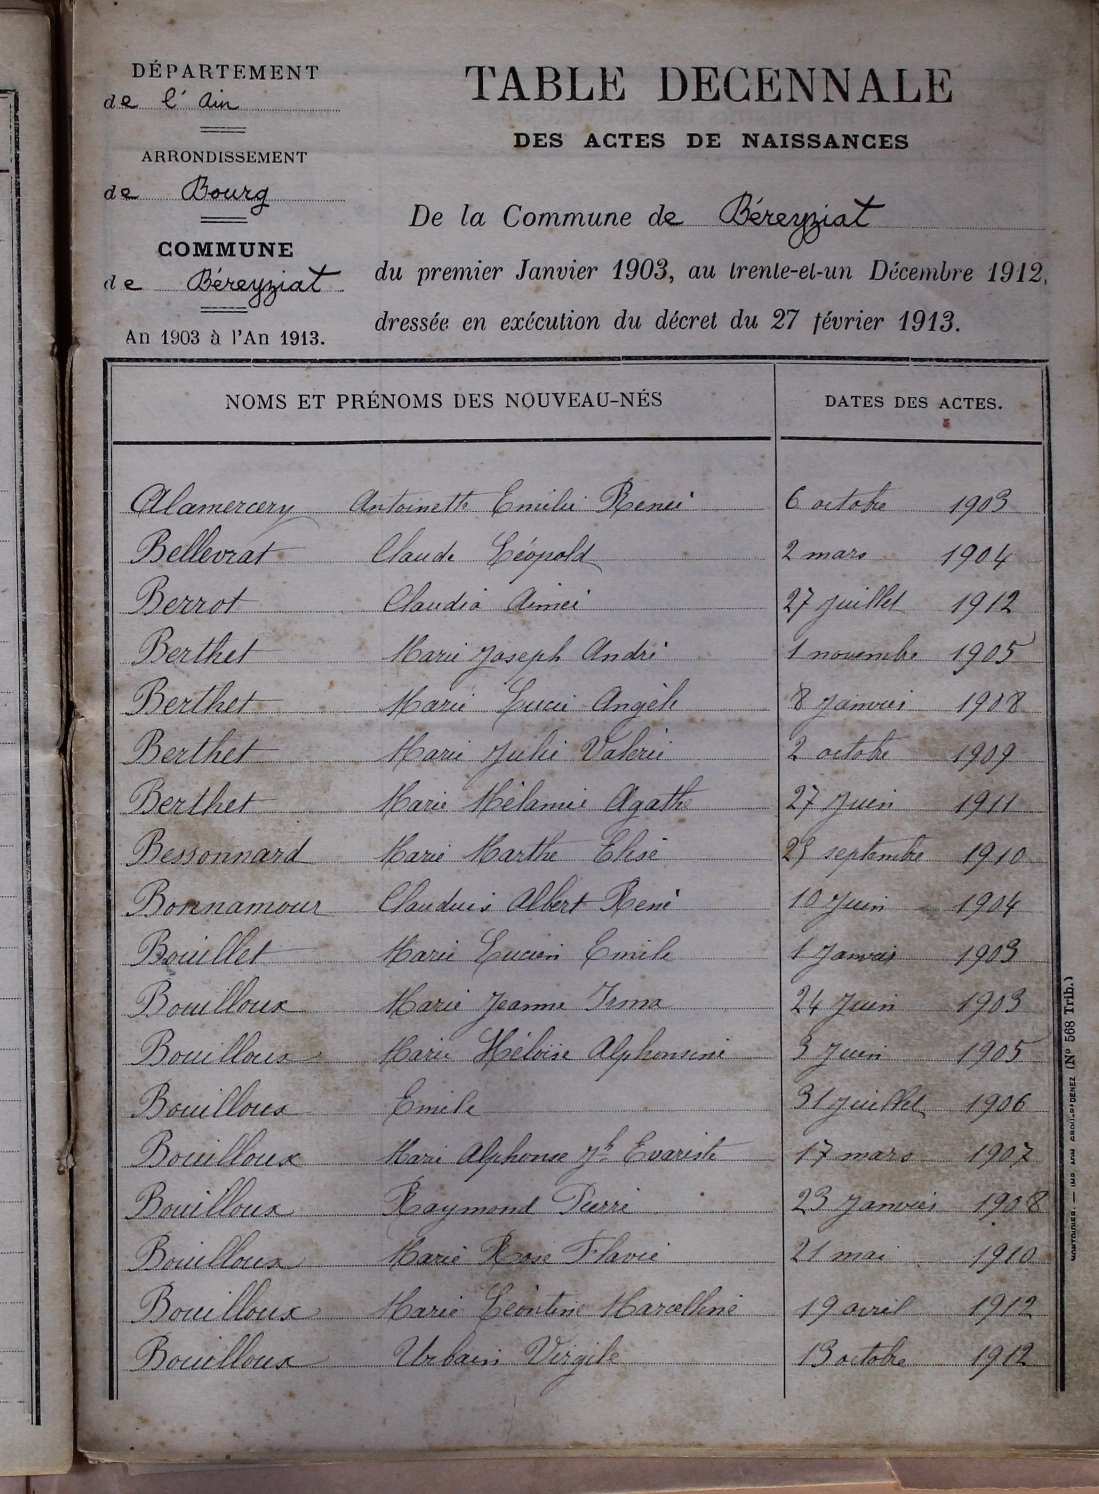 DÉPARTEMENT
de l'Ain
ARRONDISSEMENT
de Bourg
COMMUNE
de Béreyziat
An 1903 à l'An 1913.
TABLE DECENNALE
DES ACTES DE NAISSANCES
De la Commune de Béreyziat
du premier Janvier 1903, au trente-et-un Décembre 1912,
dressée en exécution du décret du 27 février 1913.
NOMS ET PRÉNOMS DES NOUVEAU-NÉS DATES DES ACTES.
Alamercery Antoinette Emilie Renée 6 octobre 1903
Bellevrat Claude Léopold 2 mars 1904
Berrot Claudia Aimée 27 juillet 1912
Berthet Marie Joseph André 1 novembre 1905
Berthet Marie Lucie Angèle 8 janvier 1908
Berthet Marie Julie Valérie 2 octobre 1909
Berthet Marie Mélanie Agathe 27 juin 1911
Bessonnard Marie Marthe Elise septembre 1910
Bonnamour Claudius Albert René 10 juin 1904
Bouillet Marie Lucien Emile 1 janvier 1903
Bouilloux Marie Jeanne Irma 24 juin 1903
Bouilloux Marie Héloïse Alphonsine 3 juin 1905
Bouilloux Emile 31 juillet 1906
Bouilloux Marie Alphonse Jh Evariste 17 mars 1907
Bouilloux Raymond Pierre 23 janvier 1908
Bouilloux Marie Rose Flavie 21 mai 1910
Bouilloux Marie Léontine Marcelline 19 avril 1912
Bouilloux Urbain Virgile 13 octobre 1912
(N° 568 Trib.)